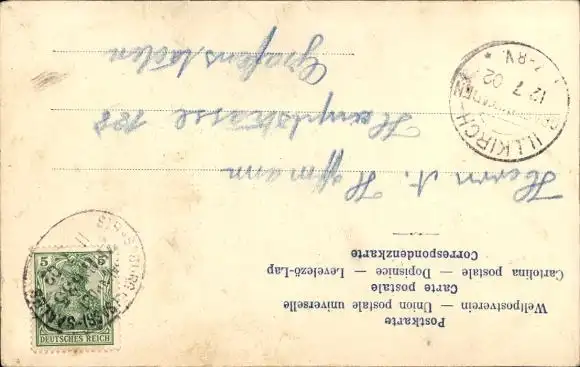 Postkarte
Weltpostverein — Union postale universelle
Carte postale
Cartolina postale — Dopisnice — Levelezö-Lap
Correspondenzkarte
Herrn A. Hoffmann
Hauptstrasse 188
Grafenstaden
ILLKIRCH
12 7 02
7-8 N.
STRASSBURG
5 5
DEUTSCHES REICH